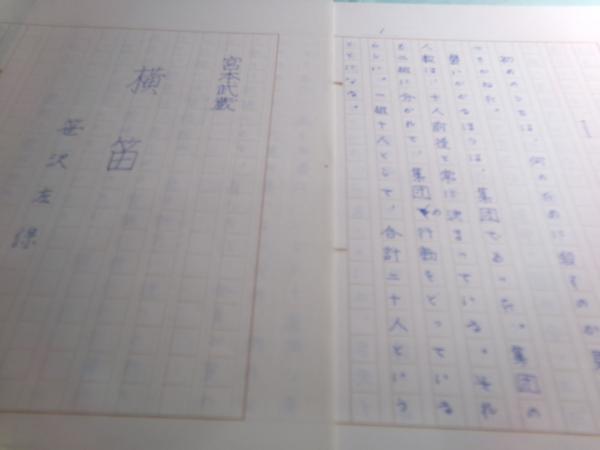 初めのうちは、何のために殺すのか見
つきかねた。
襲いかかるほうは、集団であった。集団の
人数は、十人前後と常に決まっている。それ
も二組に分かれて、集団の行動をとっている
らしい。一組十人として、合計二十人という
ことになる。
宮本武蔵
横笛
笹沢左保